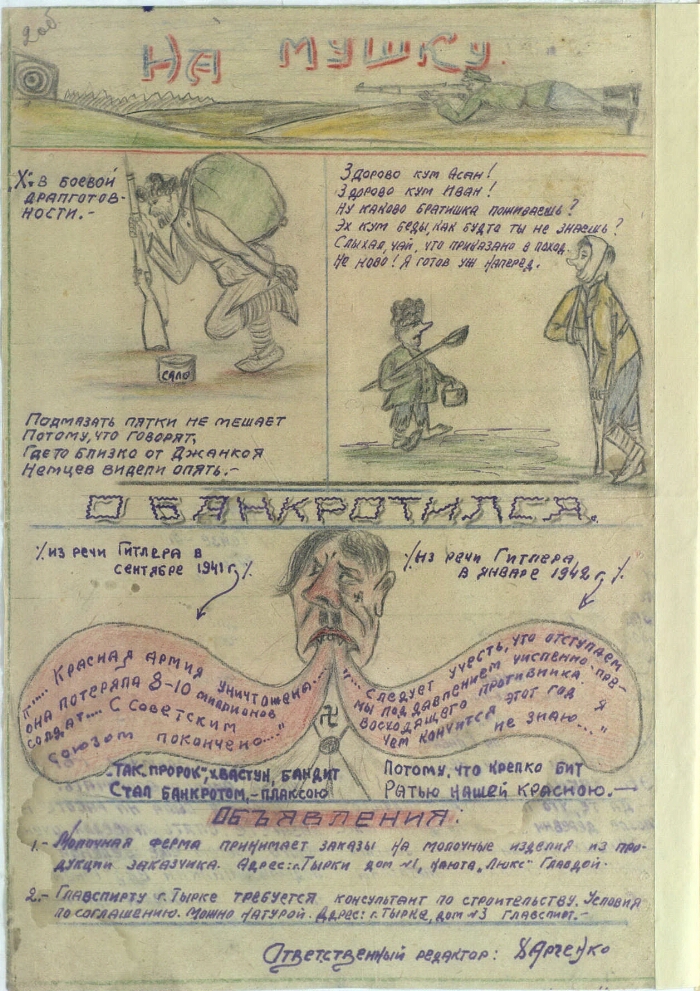 2 об
НА МУШКУ.
"Х" В БОЕВОЙ
ДРАПГОТОВ-
НОСТИ.-
САЛО
ПОДМАЗАТЬ ПЯТКИ НЕ МЕШАЕТ
ПОТОМУ, ЧТО ГОВОРЯТ,
ГДЕТО БЛИЗКО ОТ ДЖАНКОЯ
НЕМЦЕВ ВИДЕЛИ ОПЯТЬ.-
ЗДОРОВО КУМ АСАН!
ЗДОРОВО КУМ ИВАН!
НУ КАКОВО БРАТИШКА ПОЖИВАЕШЬ?
ЭХ КУМ БЕДЫ, КАК БУДТО ТЫ НЕ ЗНАЕШЬ?
СЛЫХАЛ, ЧАЙ, ЧТО ПРИКАЗАНО В ПОХОД.
НЕ НОВО! Я ГОТОВ УЖ НАПЕРЕД.
ОБАНКРОТИЛСЯ.
/. ИЗ РЕЧИ ГИТЛЕРА В
СЕНТЯБРЕ 1941 г. /.
"..... КРАСНАЯ АРМИЯ УНИЧТОЖЕНА...
ОНА ПОТЕРЯЛА 8-10 МИЛИОНОВ
СОЛДАТ.... С СОВЕТСКИМ
СОЮЗОМ ПОКОНЧЕНО...."
/. ИЗ РЕЧИ ГИТЛЕРА
В ЯНВАРЕ 1942 г. /.
"... СЛЕДУЕТ УЧЕСТЬ, ЧТО ОТСТУПАЕМ
МЫ ПОД ДАВЛЕНИЕМ ЧИСЛЕННО ПРЕ-
ВОСХОДЯЩЕГО ПРОТИВНИКА.
ЧЕМ КОНЧИТСЯ ЭТОТ ГОД Я
НЕ ЗНАЮ..."
"ТАК, ПРОРОК", ХВАСТУН, БАНДИТ
СТАЛ БАНКРОТОМ,- ПЛАКСОЮ
ПОТОМУ, ЧТО КРЕПКО БИТ
РАТЬЮ НАШЕЙ КРАСНОЮ.-
ОБЪЯВЛЕНИЯ:
1.- МОЛОЧНАЯ ФЕРМА ПРИНИМАЕТ ЗАКАЗЫ НА МОЛОЧНЫЕ ИЗДЕЛИЯ ИЗ ПРО-
ДУКЦИИ ЗАКАЗЧИКА. АДРЕС: г. ТЫРКИ ДОМ №1, КАЮТА "ЛЮКС"
2.- ГЛАВСПИРТУ г. ТЫРКЕ ТРЕБУЕТСЯ КОНСУЛЬТАНТ ПО СТРОИТЕЛЬСТВУ. УСЛОВИЯ
ПО СОГЛАШЕНИЮ. МОЖНО НАТУРОЙ. АДРЕС: г. ТЫРКЕ, ДОМ №3 ГЛАВСПИРТ.-
ОТВЕТСТВЕННЫЙ РЕДАКТОР: ХАРЧЕНКО